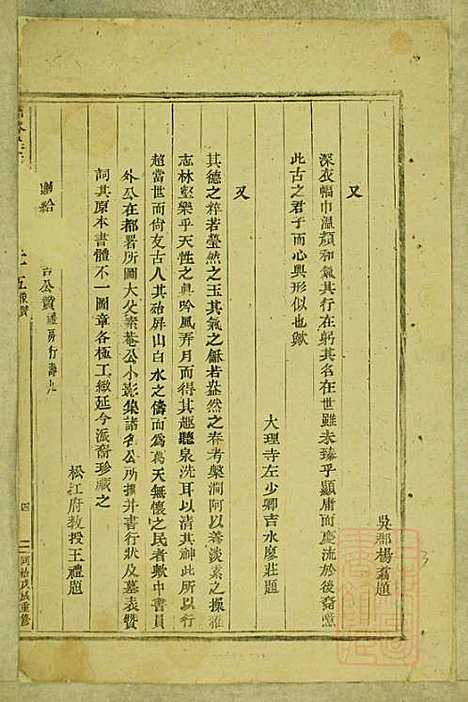 吳郡楊翥題
又
深衣幅巾溫顏和氣其行在躬其名在世雖未臻乎顯庸而慶流於後裔噫
此古之君子而心與形似也歟
大理寺左少卿吉水廖莊題
又
其德之粹若瑩然之玉其氣之龢若盎然之春考槃澗阿以養淡素之操雅
志林壑樂乎天性之眞吟風弄月而得其趣聽泉洗耳以清其神此所以行
超當世而尙友古人其殆屏山白水之儔而爲葛天無懷之民者歟中書員
外公在都署所圖大父素菴公小影集諸名公所撰并書行狀及墓表贊
詞其原本書體不一圖章各極工緻延今派裔珍藏之
松江府教授王禮題
四
同治戊戌重修